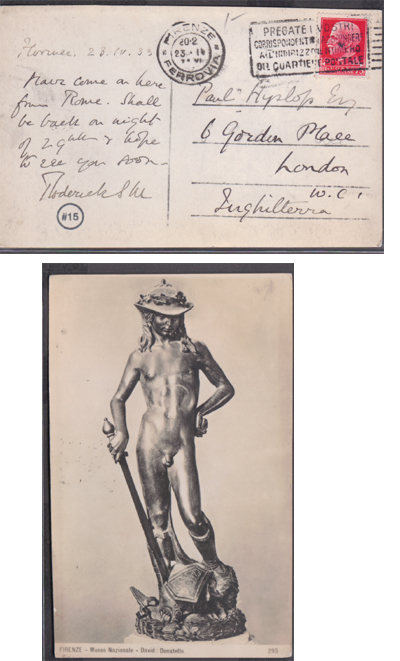 Florence, 23.IV.33
Have come on here
from Rome. Shall
be back on night
of 29th & hope
to see you soon -
Roderick
#15
FIRENZE
FERROVIA
20-2
23 · IV
PREGATE I VOSTRI
CORRISPONDENTI
ALL'INDIRIZZO IL NUMERO
DEL QUARTIERE POSTALE
Paul Hyslop Esq
6 Gordon Place
London
W.C.1
Inghilterra
FIRENZE - Museo Nazionale - David: Donatello
295